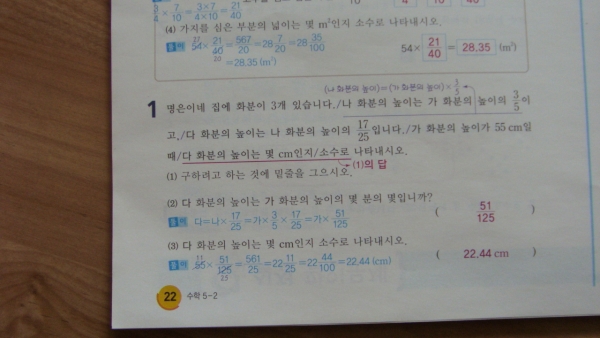 3/4 × 7/10 = 3×7/4×10 = 21/40
(4) 가지를 심은 부분의 넓이는 몇 m²인지 소수로 나타내시오.
풀이 54×21/40 = 567/20 = 28 7/20 = 28 35/100
27 20
= 28.35 (m²)
54× 21/40 = 28.35 (m²)
(나 화분의 높이)=(가 화분의 높이)×3/5
1 명은이네 집에 화분이 3개 있습니다./나 화분의 높이는 가 화분의 높이의 3/5이
고,/다 화분의 높이는 나 화분의 높이의 17/25입니다./가 화분의 높이가 55 cm일
때/다 화분의 높이는 몇 cm인지/소수로 나타내시오.
(1)의 답
(1) 구하려고 하는 것에 밑줄을 그으시오.
(2) 다 화분의 높이는 가 화분의 높이의 몇 분의 몇입니까?
풀이 다=나×17/25=가×3/5×17/25=가×51/125
( 51/125 )
(3) 다 화분의 높이는 몇 cm인지 소수로 나타내시오.
풀이 55×51/125=561/25=22 11/25=22 44/100=22.44 (cm)
11 25
( 22.44 cm )
22 수학 5-2